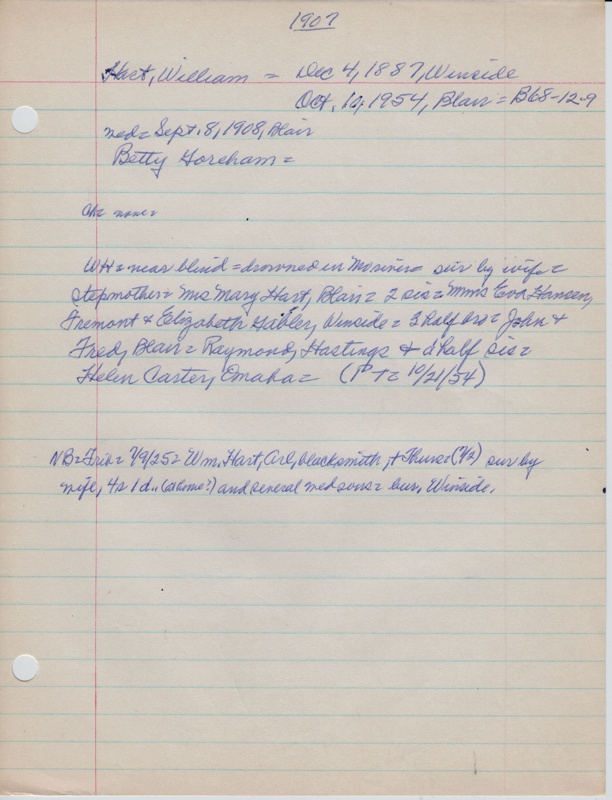 1907
Hart, William = Dec 4, 1887, Winside
Oct. 10, 1954, Blair = B68-12-9
med = Sept. 8, 1908, Blair
Betty Goreham =
Ch = none =
WH = near blind = drowned in Mo river = sur by wife =
stepmother = Mrs Mary Hart, Blair = 2 sis = Mmes Eva Hansen,
Fremont & Elizabeth Gabler, Winside = 3 half bro = John &
Fred, Blair = Raymond, Hastings & 1 half sis =
Helen Carter, Omaha = (PT = 10/21/54)
NB = Trib = 7/9/25 = Wm. Hart, Arl, blacksmith, + Thurs = (7/2) sur by
wife, 4s 1 d.. (at home?) and several med sons = bur, Winside.